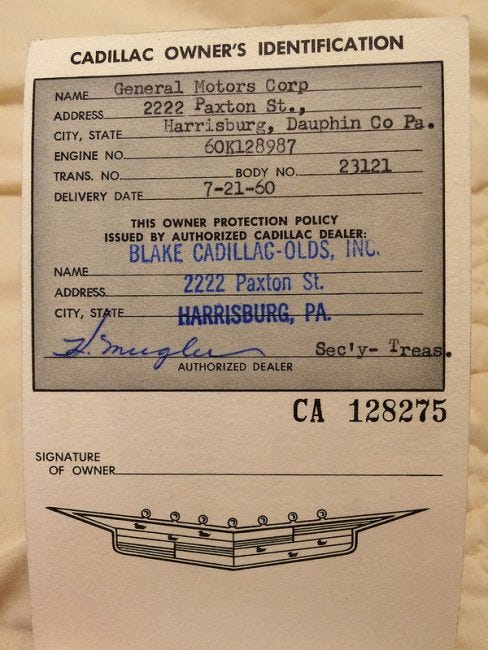 CADILLAC OWNER'S IDENTIFICATION
NAME General Motors Corp
ADDRESS 2222 Paxton St.,
CITY, STATE Harrisburg, Dauphin Co Pa.
ENGINE NO. 60K128987
TRANS. NO. BODY NO. 23121
DELIVERY DATE 7-21-60
THIS OWNER PROTECTION POLICY
ISSUED BY AUTHORIZED CADILLAC DEALER:
BLAKE CADILLAC-OLDS, INC.
NAME
ADDRESS 2222 Paxton St.
CITY, STATE HARRISBURG, PA.
H. Mugler Sec'y- Treas.
AUTHORIZED DEALER
CA 128275
SIGNATURE
OF OWNER